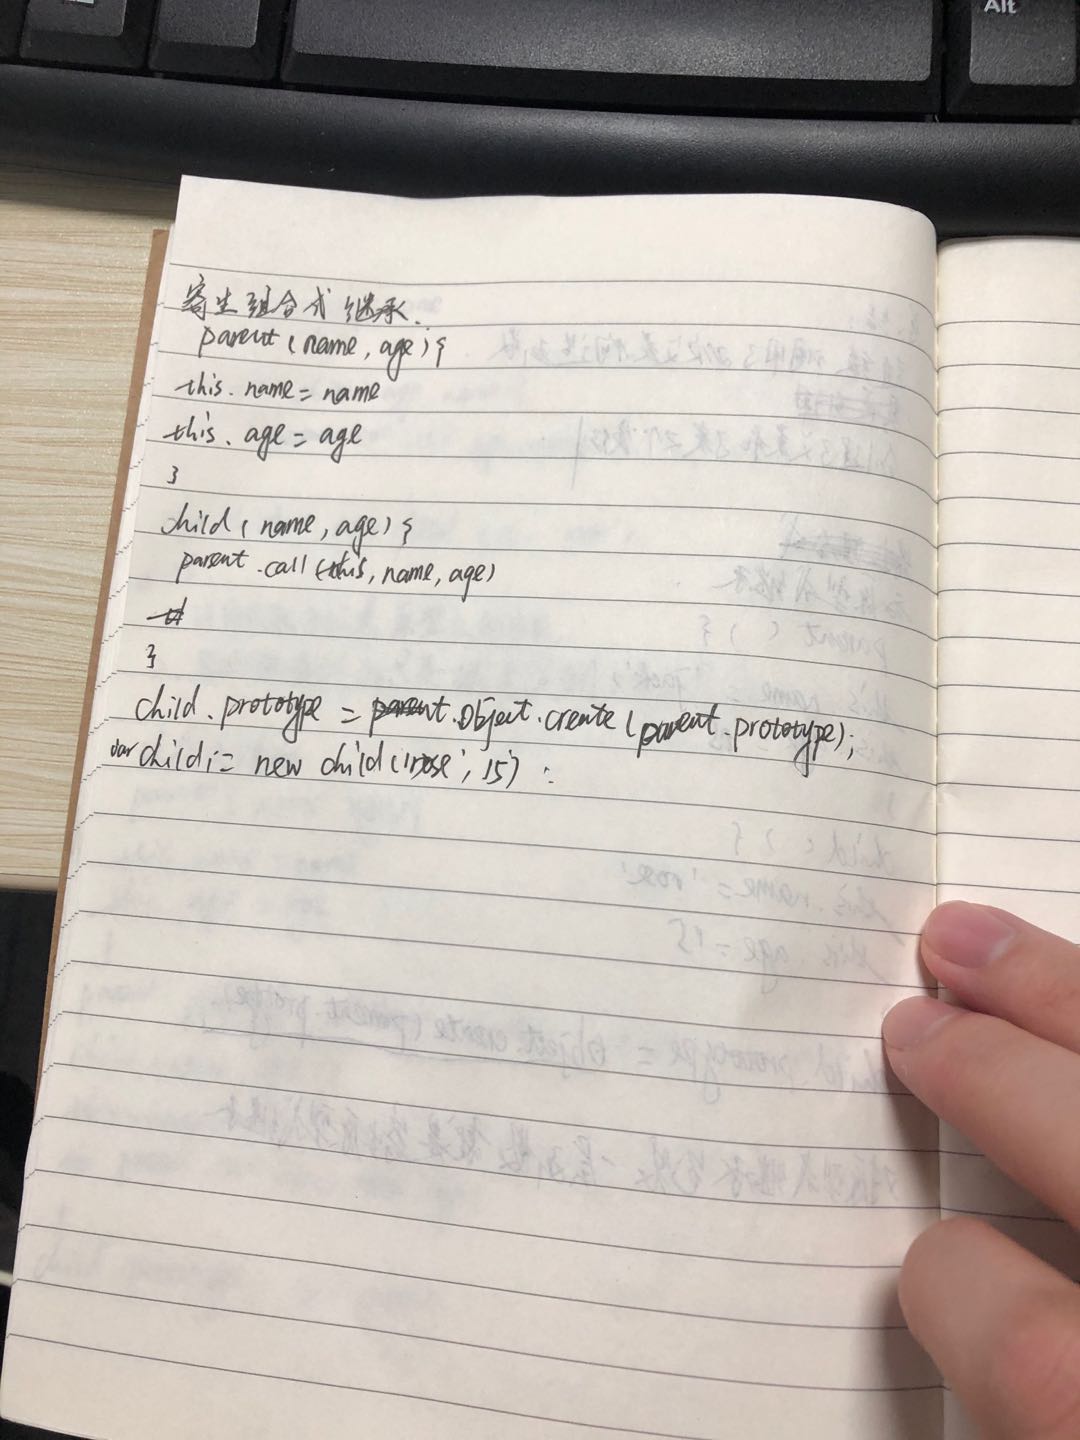 Alt
寄生组合式继承.
parent(name, age){
this.name=name
this.age=age
}
child(name, age){
parent.call(this, name, age)
}
child.prototype = Object.create(parent.prototype);
var child1= new child('rose', 15);